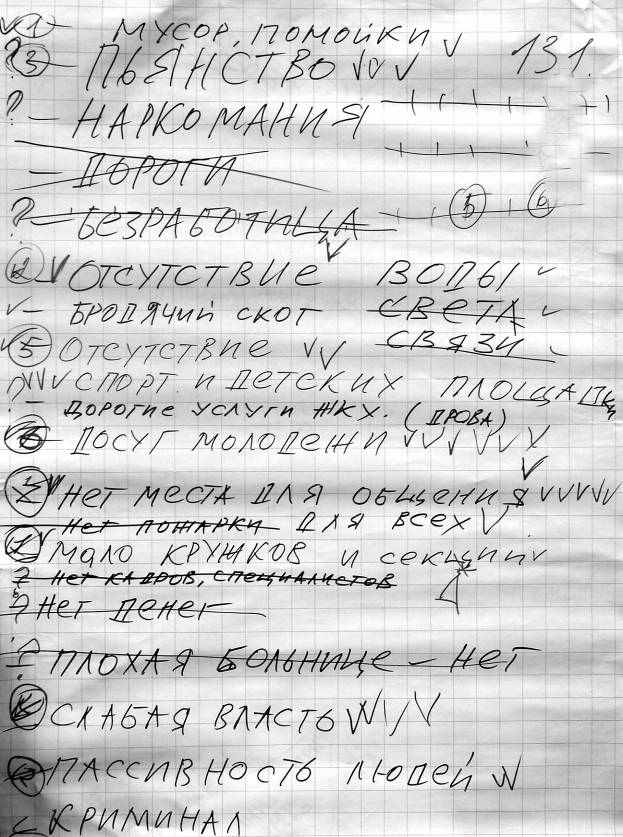 1 - МУСОР, ПОМОЙКИ V
? 3 - ПЬЯНСТВО VVV 131.
? - НАРКОМАНИЯ
- ДОРОГИ
? - БЕЗРАБОТИЦА 5 6
V ОТСУТСТВИЕ ВОДЫ
- БРОДЯЧИЙ СКОТ СВЕТА
5 ОТСУТСТВИЕ VV СВЯЗИ
? VVV СПОРТ. И ДЕТСКИХ ПЛОЩАДК
- ДОРОГИЕ УСЛУГИ ЖКХ. (ДРОВА)
6 - ДОСУГ МОЛОДЕЖИ VVVVVV
НЕТ МЕСТА ДЛЯ ОБЩЕНИЯ VVVVV
НЕТ ПОЖАРКИ ДЛЯ ВСЕХ V
1 МАЛО КРУЖКОВ И СЕКЦИЙ V
? НЕТ КАДРОВ, СПЕЦИАЛИСТОВ
? НЕТ ДЕНЕГ
? - ПЛОХАЯ БОЛЬНИЦЕ - НЕТ
СЛАБАЯ ВЛАСТЬ VVVV
ПАССИВНОСТЬ ЛЮДЕЙ VV
КРИМИНАЛ